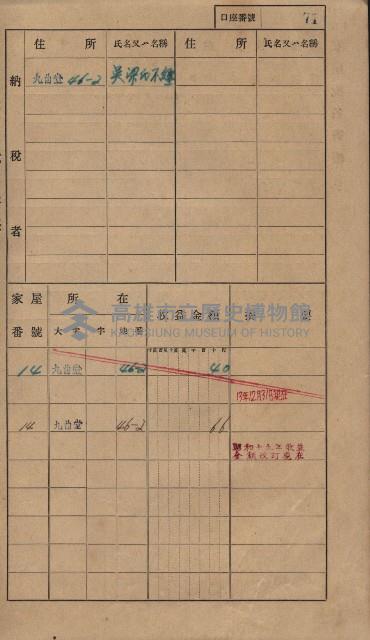 口座番號 72
住所 氏名又ハ名稱 住所 氏名又ハ名稱
納稅者
九曲堂 46-2 吳梁氏不纏
家屋番號 所在 收益金額 摘要
大字 字 地番
14 九曲堂 46-2 40
13年12月31日現在
14 九曲堂 46-2 66
昭和十五年收益
金額改訂現在
高雄市立歷史博物館
KAOHSIUNG MUSEUM OF HISTORY